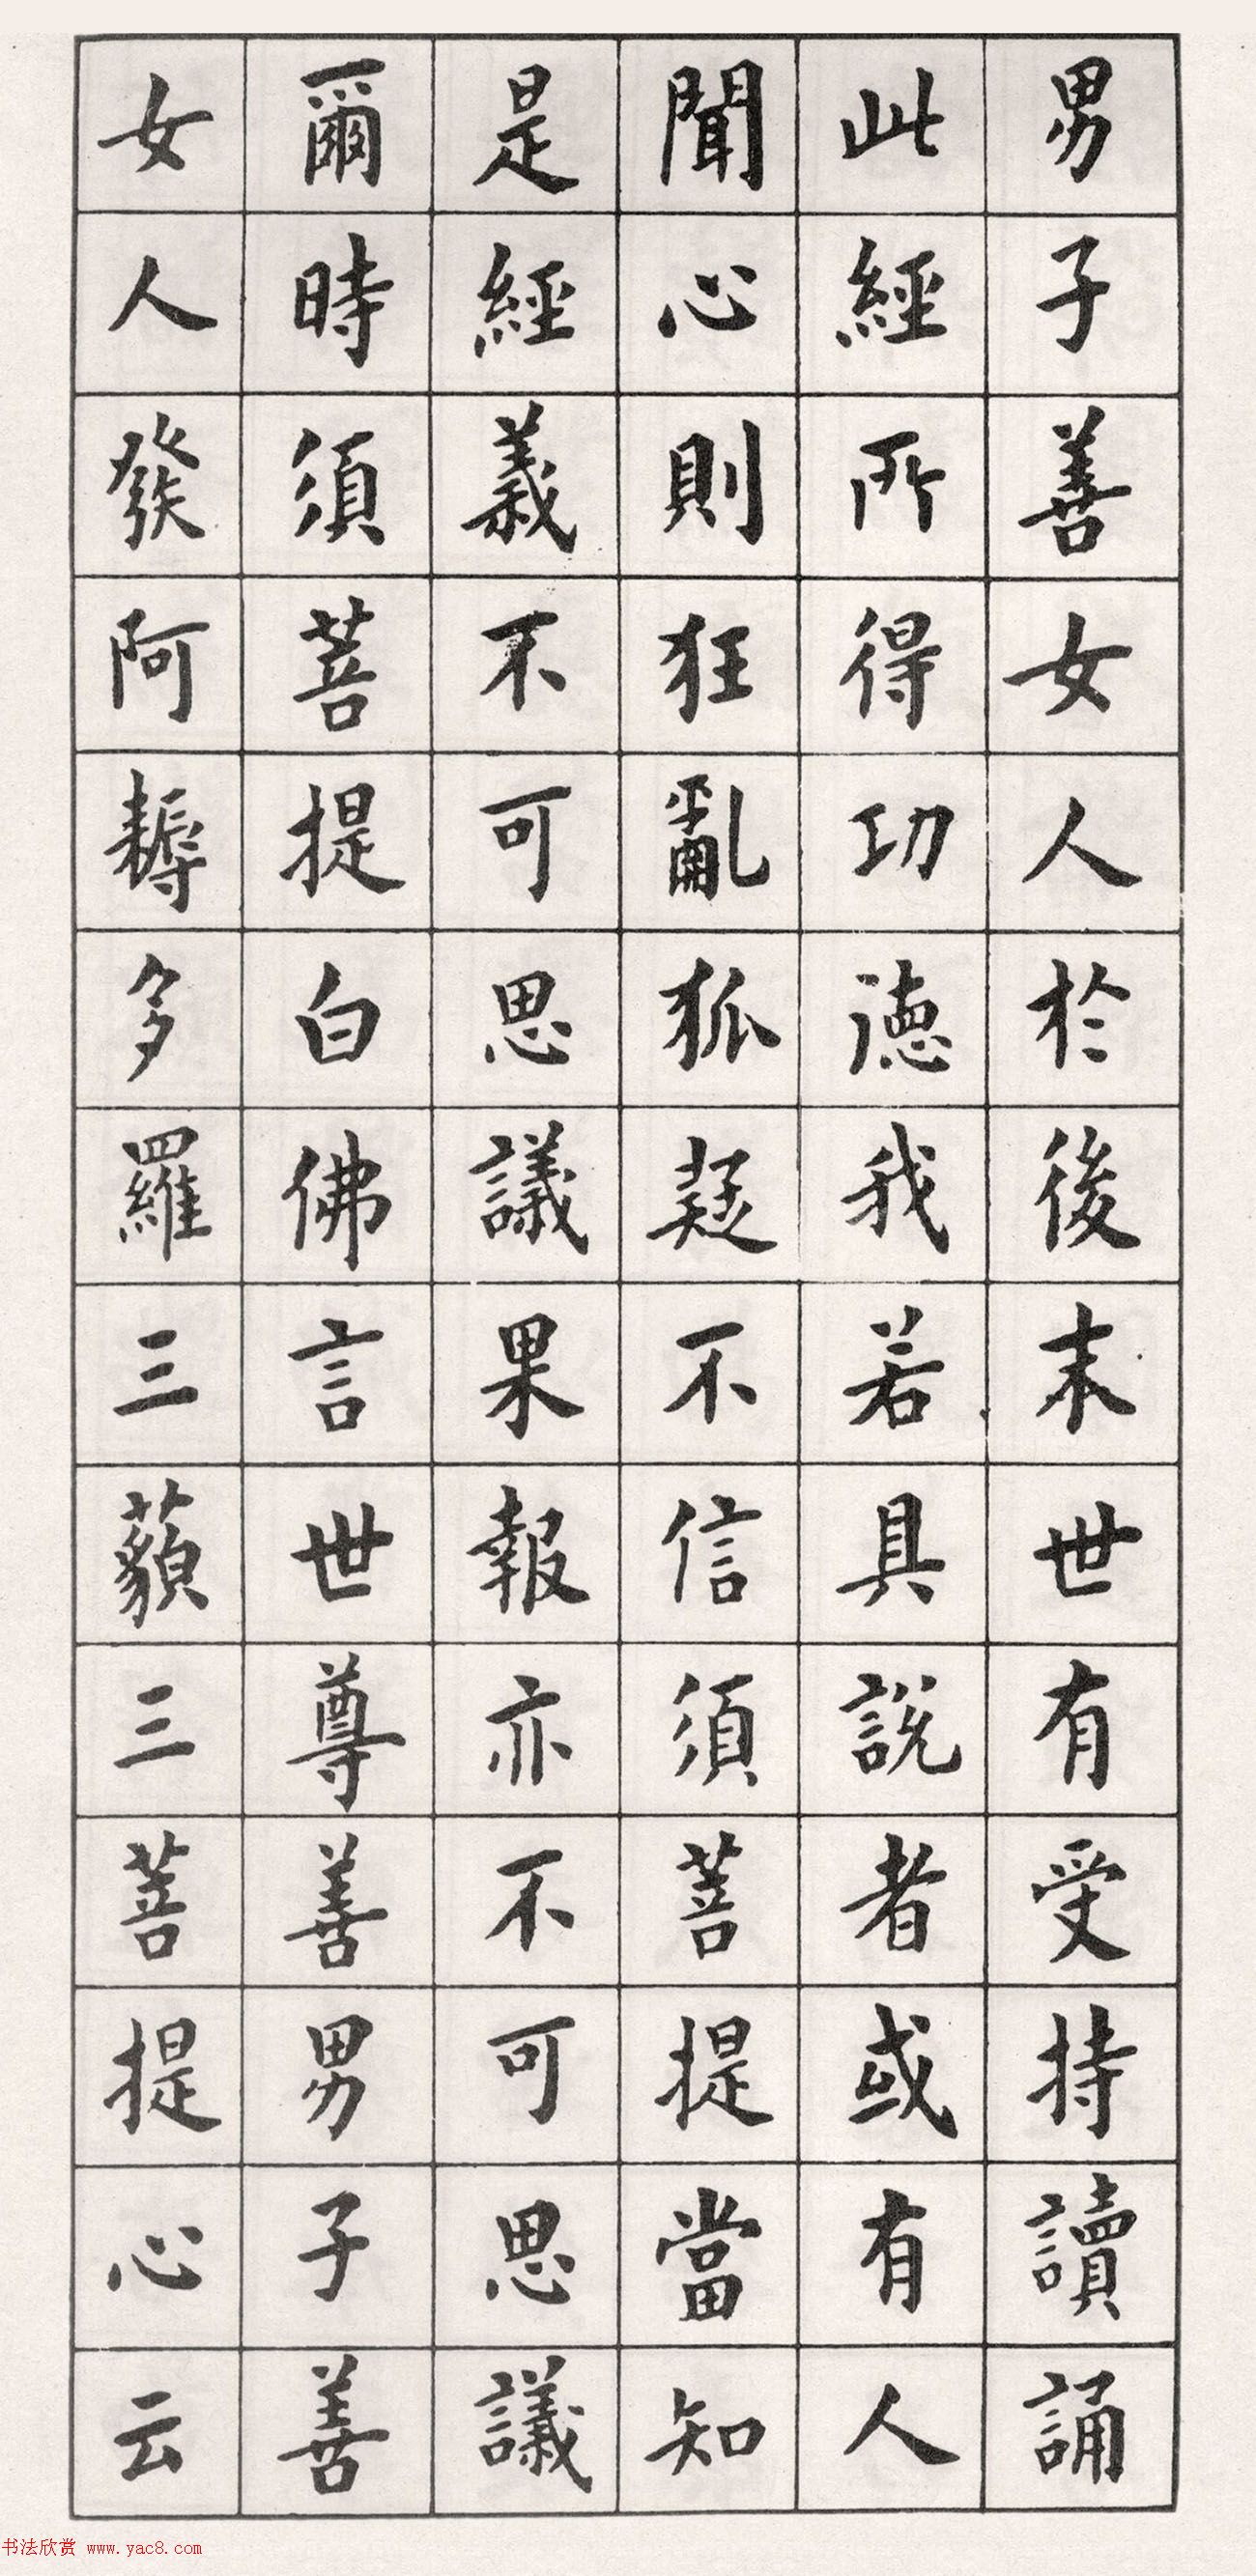 男子善女人於後末世有受持讀誦
此經所得功德我若具說者或有人
聞心則狂亂狐疑不信須菩提當知
是經義不可思議果報亦不可思議
爾時須菩提白佛言世尊善男子善
女人發阿耨多羅三藐三菩提心云
书法欣赏 www.yac8.com